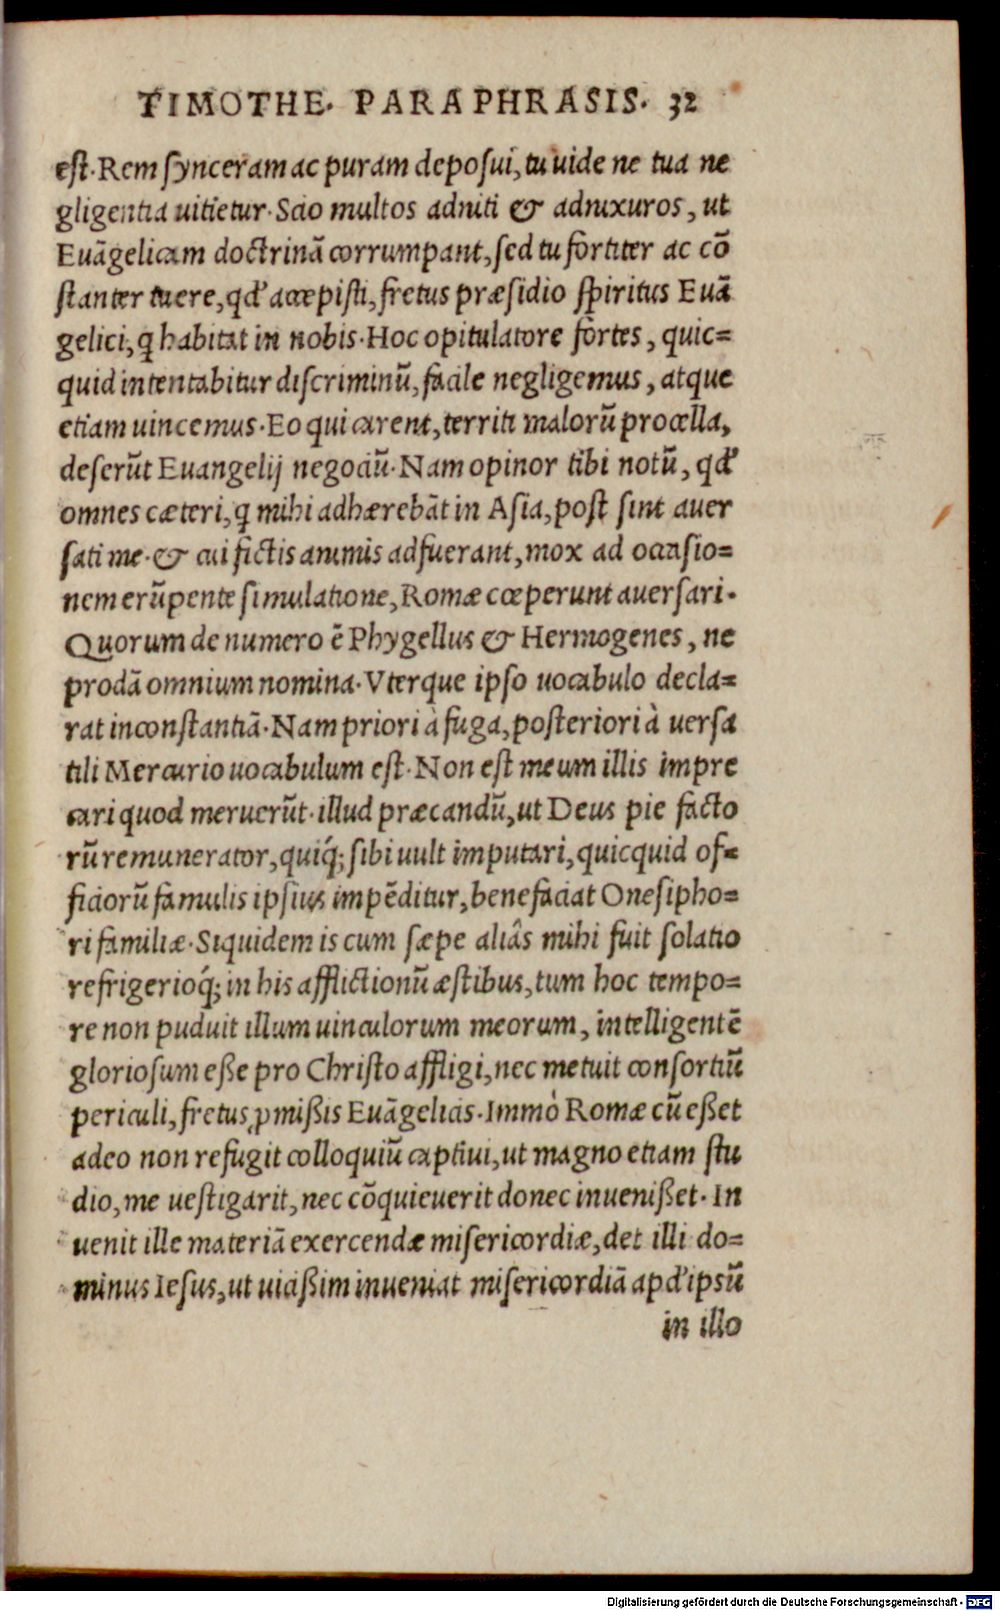 TIMOTHE. PARAPHRASIS. 32
est. Rem synceram ac puram deposui, tu uide ne tua ne
gligentia uitietur. Scio multos adniti & adnixuros, ut
Euãgelicam doctrinã corrumpant, sed tu fortiter ac cõ
stanter tuere, qđ accepisti, fretus præsidio spiritus Euã
gelici, ꝗ habitat in nobis. Hoc opitulatore fortes, quic=
quid intentabitur discriminũ, facile negligemus, atque
etiam uincemus. Eo qui carent, territi malorũ procella,
deserũt Euangelij negociũ. Nam opinor tibi notũ, qđ
omnes cæteri, ꝗ mihi adhærebãt in Asia, post sint auer
sati me. & cui fictis animis adfuerant, mox ad occasio=
nem erũpente simulatione, Romæ cœperunt auersari.
Quorum de numero ẽ Phygellus & Hermogenes, ne
prodã omnium nomina. Vterque ipso uocabulo decla=
rat inconstantiã. Nam priori à fuga, posteriori à uersa
tili Mercurio uocabulum est. Non est meum illis impre
cari quod meruerũt. illud præcandũ, ut Deus pie facto
rũ remunerator, quiq́; sibi uult imputari, quicquid of=
ficiorũ famulis ipsius impẽditur, benefaciat Onesipho=
ri familiæ. Siquidem is cum sæpe aliâs mihi fuit solatio
refrigerioq́; in his afflictionũ æstibus, tum hoc tempo=
re non puduit illum uinculorum meorum, intelligentẽ
gloriosum eße pro Christo affligi, nec metuit consortiũ
periculi, fretus ꝓmißis Euãgelicis. Immò Romæ cũ eßet
adeo non refugit colloquiũ captiui, ut magno etiam stu
dio, me uestigarit, nec cõquieuerit donec inuenißet. In
uenit ille materiã exercendæ misericordiæ, det illi do=
minus Iesus, ut uicißim inueniat misericordiã apđ ipsũ
in illo
Digitalisierung gefördert durch die Deutsche Forschungsgemeinschaft - DFG